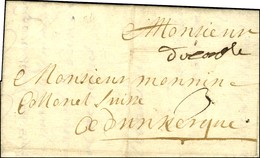 Monsieur
Monsieur monnine
Collonel Suisse
3
a Dunkerque